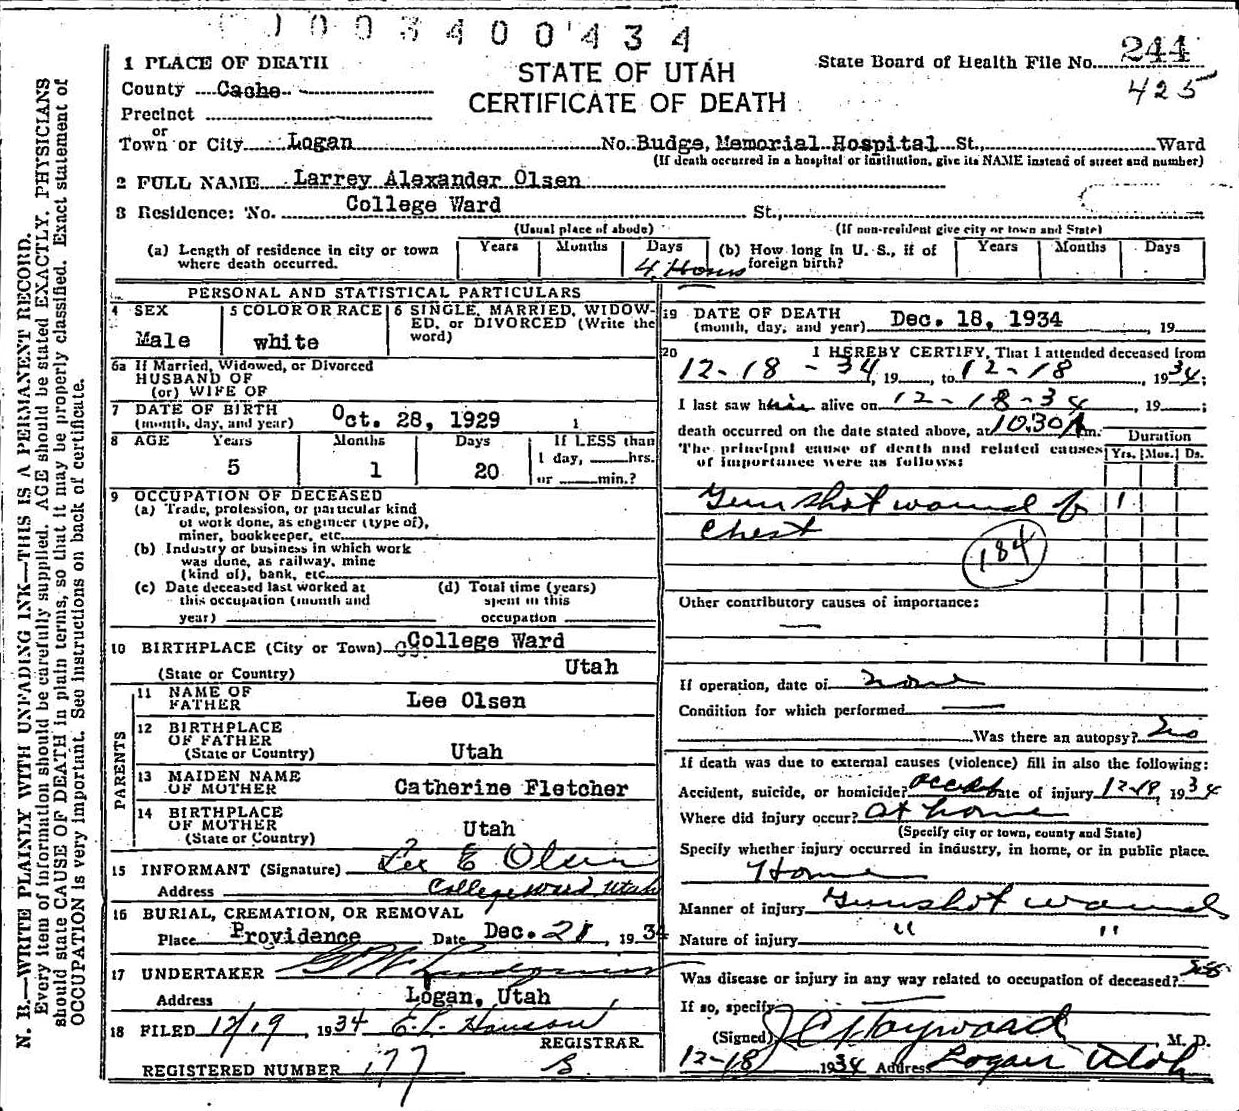 003400434
1 PLACE OF DEATH
County Cache
Precinct
or
Town or City Logan No. Budge Memorial Hospital St., Ward
(If death occurred in a hospital or institution, give its NAME instead of street and number)
STATE OF UTAH
CERTIFICATE OF DEATH
State Board of Health File No. 244
425
2 FULL NAME Larrey Alexander Olsen
3 Residence: No. College Ward St.,
(Usual place of abode) (If non-resident give city or town and State)
(a) Length of residence in city or town where death occurred. Years Months Days 4 Hours
(b) How long in U. S., if of foreign birth? Years Months Days
PERSONAL AND STATISTICAL PARTICULARS
4 SEX Male
5 COLOR OR RACE white
6 SINGLE, MARRIED, WIDOWED, or DIVORCED (Write the word)
6a If Married, Widowed, or Divorced
HUSBAND OF
(or) WIFE OF
7 DATE OF BIRTH
(month, day, and year) Oct. 28, 1929
8 AGE Years Months Days If LESS than
1 day, hrs.
or min.?
5 1 20
9 OCCUPATION OF DECEASED
(a) Trade, profession, or particular kind
of work done, as engineer (type of),
miner, bookkeeper, etc.
(b) Industry or business in which work
was done, as railway, mine
(kind of), bank, etc.
(c) Date deceased last worked at
this occupation (month and
year)
(d) Total time (years)
spent in this
occupation
10 BIRTHPLACE (City or Town) College Ward
(State or Country) Utah
PARENTS
11 NAME OF
FATHER Lee Olsen
12 BIRTHPLACE
OF FATHER
(State or Country) Utah
13 MAIDEN NAME
OF MOTHER Catherine Fletcher
14 BIRTHPLACE
OF MOTHER
(State or Country) Utah
15 INFORMANT (Signature) Lee E Olsen
Address College Ward, Utah
16 BURIAL, CREMATION, OR REMOVAL
Place Providence Date Dec. 21, 1934
17 UNDERTAKER
Address Logan, Utah
18 FILED 12/19 1934 E. L. Hanson
REGISTRAR
REGISTERED NUMBER 177
19 DATE OF DEATH
(month, day, and year) Dec. 18, 1934 , 19
20 I HEREBY CERTIFY, That I attended deceased from
12-18-34, 19 , to 12-18 , 1934;
I last saw him alive on 12-18-34 , 19 ;
death occurred on the date stated above, at 10:30 A m.
The principal cause of death and related causes
of importance were as follows:
Duration
Yrs. Mos. Ds.
Gunshot wound of
Chest
184
Other contributory causes of importance:
If operation, date of none
Condition for which performed
Was there an autopsy? No
If death was due to external causes (violence) fill in also the following:
Accident, suicide, or homicide? Date of injury 12-18, 1934
Where did injury occur? at home
(Specify city or town, county and State)
Specify whether injury occurred in industry, in home, or in public place.
Home
Manner of injury Gunshot wound
Nature of injury " "
Was disease or injury in any way related to occupation of deceased?
If so, specify
(Signed) J C Hayward M. D.
12-18 1934 Address Logan Utah
N. B.—WRITE PLAINLY WITH UNFADING INK—THIS IS A PERMANENT RECORD.
Every item of information should be carefully supplied. AGE should be stated EXACTLY. PHYSICIANS
should state CAUSE OF DEATH in plain terms, so that it may be properly classified. Exact statement of
OCCUPATION is very important. See instructions on back of certificate.